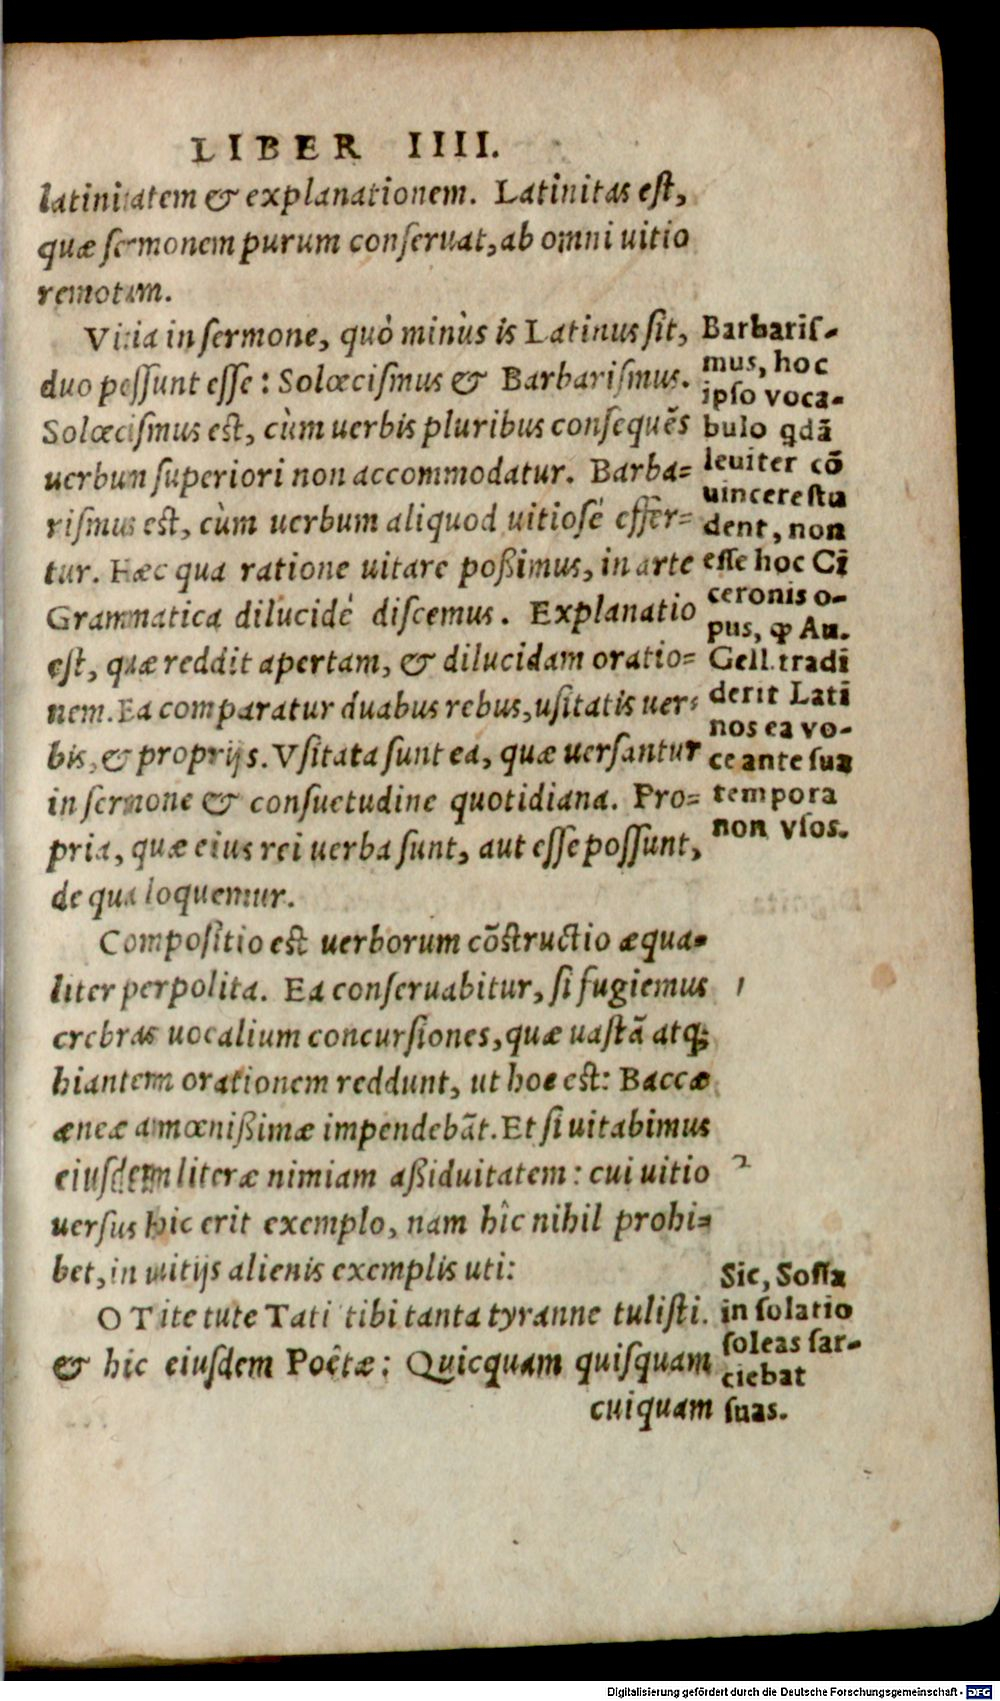 LIBER IIII.
latinitatem & explanationem. Latinitas est,
quæ sermonem purum conseruat, ab omni uitio
remotam.
Vitia in sermone, quò minùs is Latinus sit,
duo possunt esse: Solœcismus & Barbarismus.
Solœcismus est, cùm uerbis pluribus consequẽs
uerbum superiori non accommodatur. Barba=
rismus est, cùm uerbum aliquod uitiosè effer=
tur. Hæc qua ratione uitare poßimus, in arte
Grammatica dilucidè discemus. Explanatio
est, quæ reddit apertam, & dilucidam oratio=
nem. Ea comparatur duabus rebus, usitatis uer=
bis, & proprijs. Vsitata sunt ea, quæ uersantur
in sermone & consuetudine quotidiana. Pro=
pria, quæ eius rei uerba sunt, aut esse possunt,
de qua loquemur.
Compositio est uerborum cõstructio æqua-
liter perpolita. Ea conseruabitur, si fugiemus
crebras uocalium concursiones, quæ uastã atq;
hiantem orationem reddunt, ut hoc est: Baccæ
æneæ amœnißimæ impendebãt. Et si uitabimus
eiusdem literæ nimiam aßiduitatem: cui uitio
uersus hic erit exemplo, nam hîc nihil prohi=
bet, in uitijs alienis exemplis uti:
O Tite tute Tati tibi tanta tyranne tulisti.
& hic eiusdem Poëtæ: Quicquam quisquam
cuiquam
Barbaris-
mus, hoc
ipso voca-
bulo qdã
leuiter cõ
uincere stu
dent, non
esse hoc Cĩ
ceronis o-
pus, ꝙ Au.
Gell. tradĩ
derit Latĩ
nos ea vo-
ce ante sua
tempora
non vsos.
1
2
Sic, Sosia
in solatio
soleas sar-
ciebat
suas.
Digitalisierung gefördert durch die Deutsche Forschungsgemeinschaft - DFG